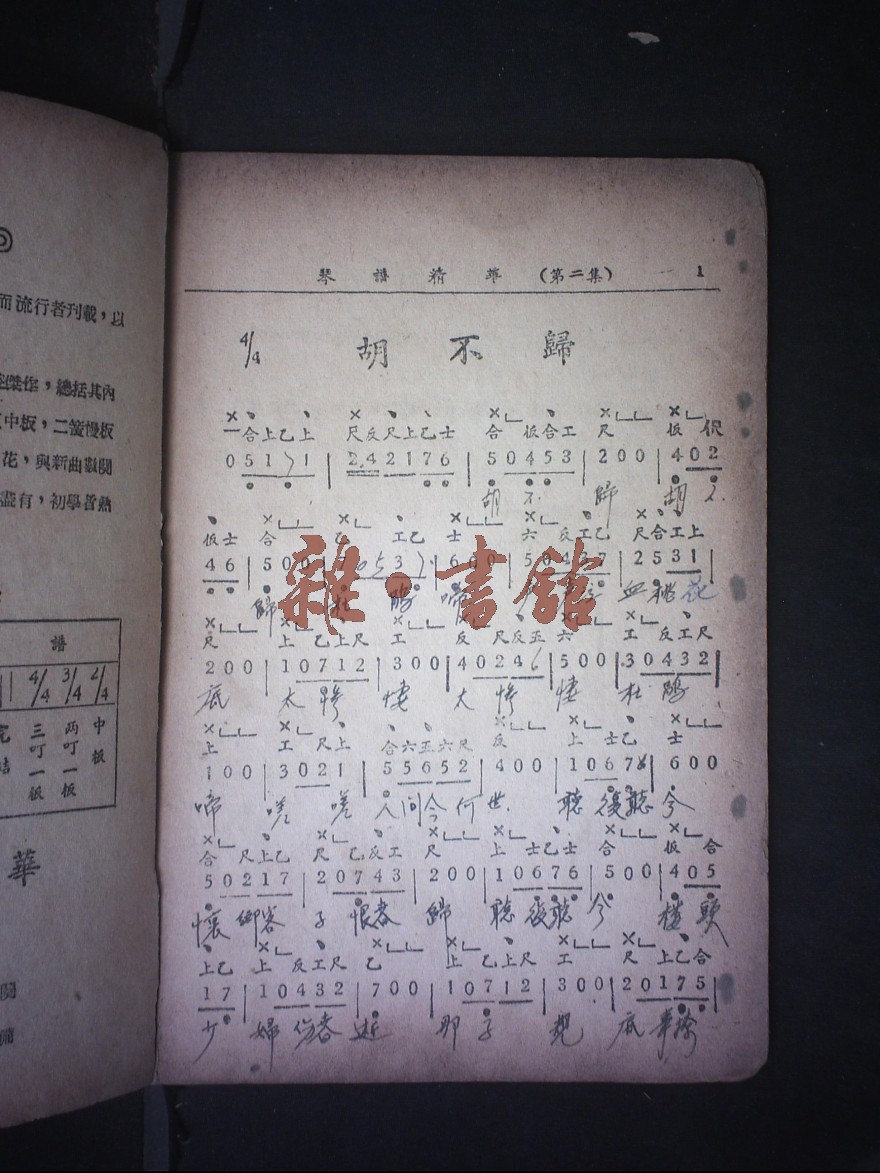 琴譜精華 (第二集) 1
4/4 胡不歸
一合上乙上 尺反尺上乙士 合 仮合工 尺 仮 伬
0 5 1 1 | 2 4 2 1 7 6 | 5 0 4 5 3 | 2 0 0 | 4 0 2
胡不歸 胡不
仮士 合 乙 工乙 士 六 反工乙 尺合工上
4 6 | 5 0 0 | 3 | 6 0 0 | 2 5 3 1
歸 杜鵑啼 血桃花
尺 上 乙上尺 工 反 尺反五六 工 反工尺
2 0 0 | 1 0 7 1 2 | 3 0 0 | 4 0 2 4 6 | 5 0 0 | 3 0 4 3 2
底 太慘悽 太慘悽 杜鵑
上 工 尺上 合六五六尺 反 上 士乙 士
1 0 0 | 3 0 2 1 | 5 5 6 5 2 | 4 0 0 | 1 0 6 7 | 6 0 0
啼 嗟嗟人間今何世 聽後聽今
合 尺上乙 尺 乙反工 尺 上 士乙士 合 仮 合
5 0 2 1 7 | 2 0 7 4 3 | 2 0 0 | 1 0 6 7 6 | 5 0 0 | 4 0 5
懷鄉客子恨春歸 聽後聽今 樓頭
上乙 上 反工尺 乙 上 乙上尺 工 尺 上乙合
1 7 | 1 0 4 3 2 | 7 0 0 | 1 0 7 1 2 | 3 0 0 | 2 0 1 7 5
少婦傷春逝 那子 底
而流行者刊載，以
傑作，總括其內
中板，二簧慢板
花，與新曲數闋
盡有，初學者熱
譜
4/4 3/4 2/4
三叮一板 兩叮一板 中板
華
雜·書館